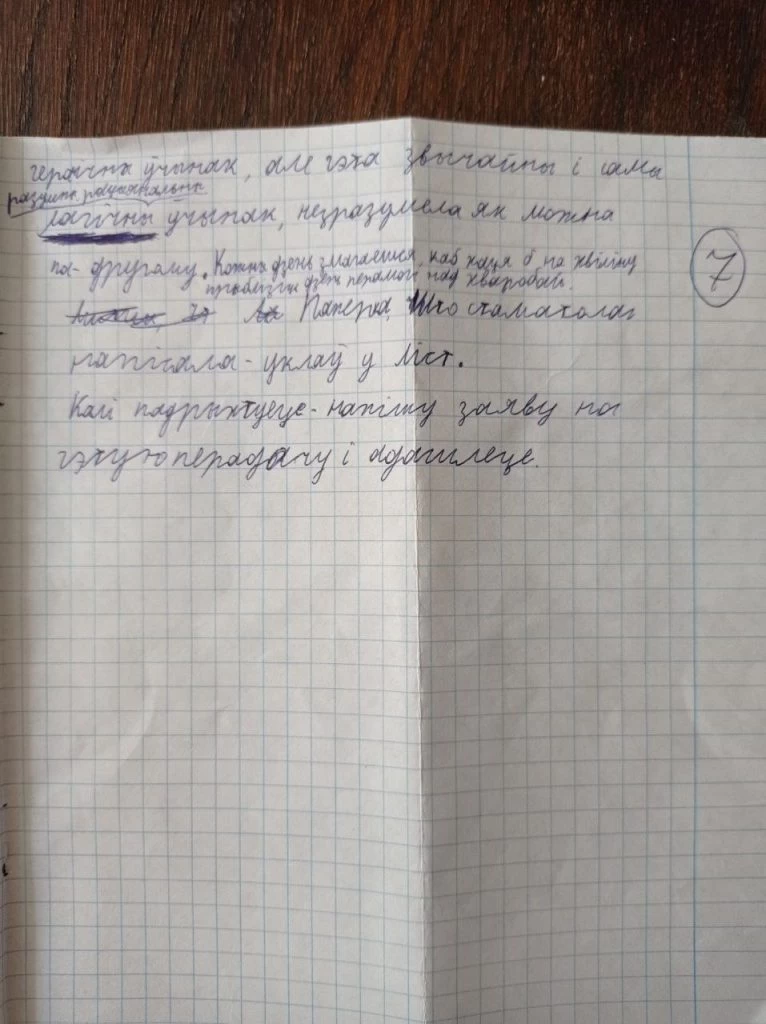 гераічны ўчынак, але гэта звычайны і сама
разумны рацыянальны
лагічны ўчынак, незразумела як можна
па-другому. Кожны дзень змагаемся, каб хаця б на хвіліну
прыблізіць дзень перамогі над хваробай.
Паперка, што стаматолаг
напісала - уклаў у ліст.
Калі падрыхтуеце - напішу заяву на
гэтую перадачу і адашлеце.
7